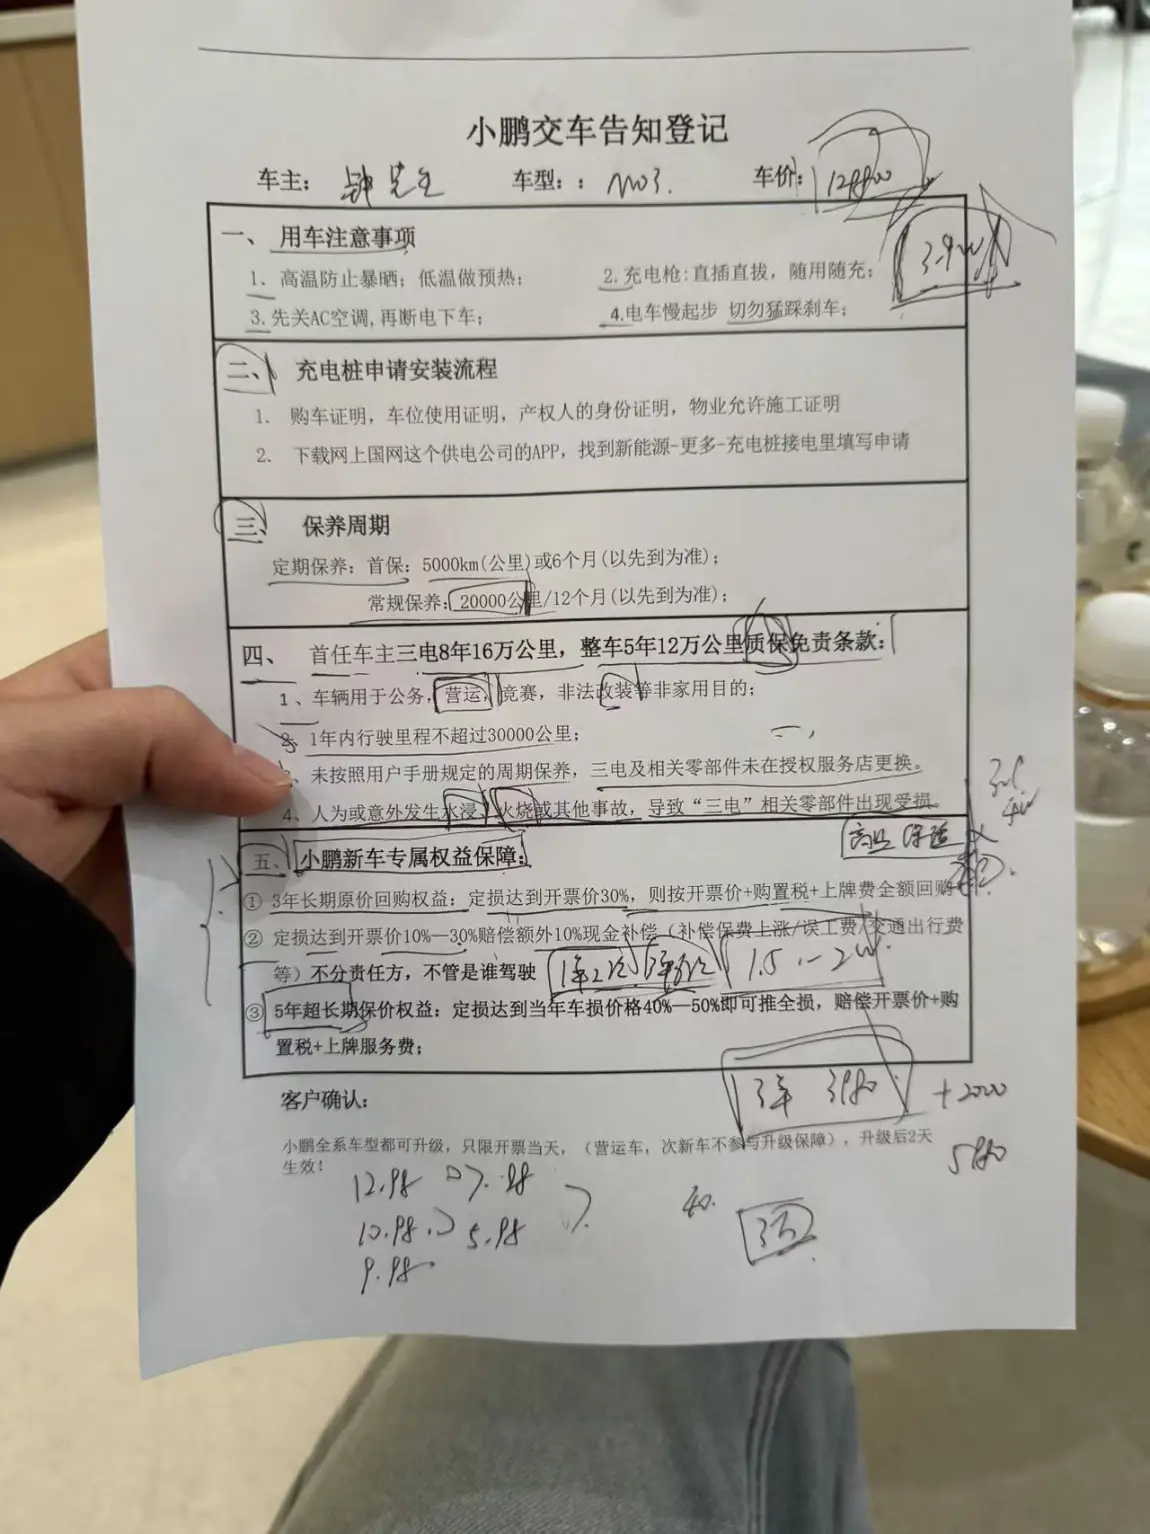 小鹏交车告知登记
车主： 钟先生 车型：： M03. 车价：129800
一、 用车注意事项
1. 高温防止暴晒；低温做预热； 2.充电枪：直插直拔，随用随充；
3.先关AC空调,再断电下车； 4.电车慢起步 切勿猛踩刹车；
二、 充电桩申请安装流程
1. 购车证明，车位使用证明，产权人的身份证明，物业允许施工证明
2. 下载网上国网这个供电公司的APP，找到新能源-更多-充电桩接电里填写申请
三、 保养周期
定期保养：首保：5000km(公里)或6个月(以先到为准)；
常规保养：20000公里/12个月(以先到为准)；
四、 首任车主三电8年16万公里，整车5年12万公里质保免责条款：
1、车辆用于公务，营运，竞赛，非法改装等非家用目的；
2、1年内行驶里程不超过30000公里；
3、未按照用户手册规定的周期保养，三电及相关零部件未在授权服务店更换。
4、人为或意外发生水浸，火烧或其他事故，导致“三电”相关零部件出现受损。
商业保险
五、小鹏新车专属权益保障：
① 3年长期原价回购权益：定损达到开票价30%，则按开票价+购置税+上牌费全额回购
② 定损达到开票价10%—30%赔偿额外10%现金补偿（补偿保费上涨/误工费/交通出行费
等）不分责任方，不管是谁驾驶
1.5.～2W
③ 5年超长期保价权益：定损达到当年车损价格40%—50%即可推全损，赔偿开票价+购
置税+上牌服务费；
3年 3980 +2000
客户确认：
5980
小鹏全系车型都可升级，只限开票当天，（营运车，次新车不参与升级保障），升级后2天
生效！
12.98 7.98
10.98 5.98
9.98